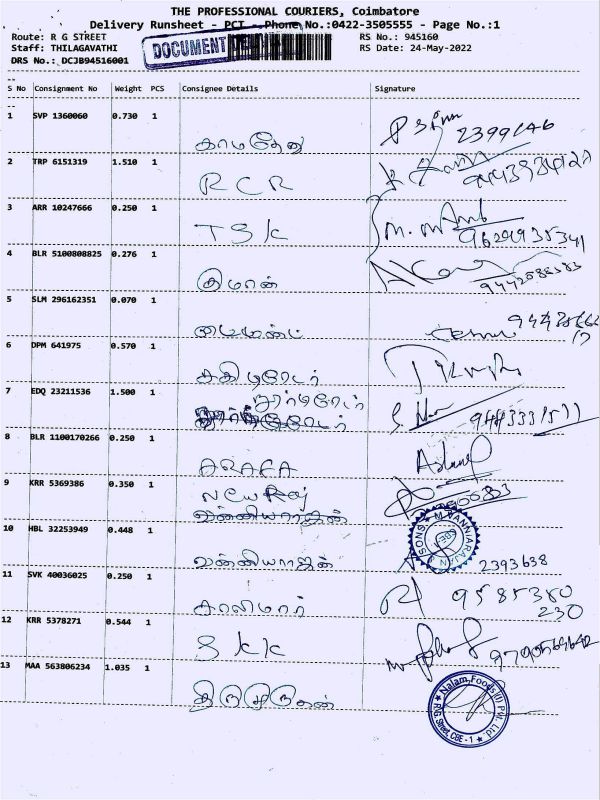 THE PROFESSIONAL COURIERS, Coimbatore
Delivery Runsheet - PCT - Phone No.:0422-3505555 - Page No.:1
Route: R G STREET RS No.: 945160
Staff: THILAGAVATHI RS Date: 24-May-2022
DRS No.: DCJB94516001
DOCUMENT
S No Consignment No Weight PCS Consignee Details Signature
1 SVP 1360060 0.730 1
காமதேனு 2399646
2 TRP 6151319 1.510 1
RCR
3 ARR 10247666 0.250 1
TSK 9629935341
4 BLR 5100808825 0.276 1
இமான் 9442588383
5 SLM 296162351 0.070 1
6 DPM 641975 0.570 1
7 EDQ 23211536 1.500 1
8 BLR 1100170266 0.250 1
ARAFA
9 KRR 5369386 0.350 1
New Raj
வன்னியராஜன்
10 HBL 32253949 0.448 1
வன்னியராஜன் 2393638
11 SVK 40036025 0.250 1
சாலிமார் 9585380
230
12 KRR 5378271 0.544 1
SKK
13 MAA 563806234 1.035 1
Nalam Foods (I) Pvt. Ltd
R.G. Street, CBE - 1